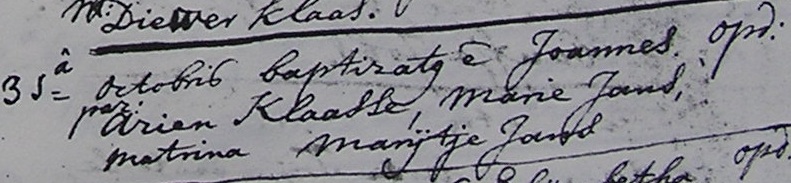 Mr: Diewer Klaas.
3 5â octobris baptizatg ē Joannes. opd:
par: Arien Klaasse, Marie Jans,
matrina Marijtje Jans
opd.